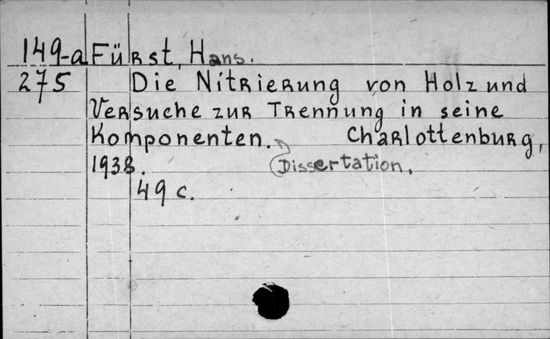 149-a Fürst, Hans.
275 Die Nitrierung von Holz und
Versuche zur Trennung in seine
Komponenten. Charlottenburg,
1938. Dissertation.
49 c.